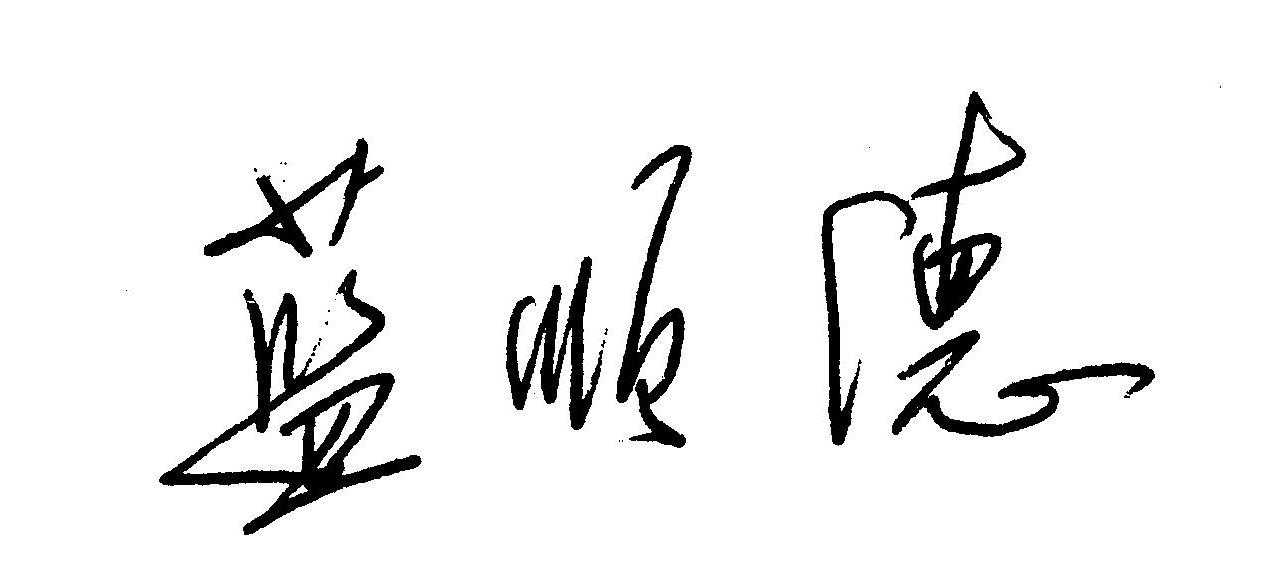 藍順德